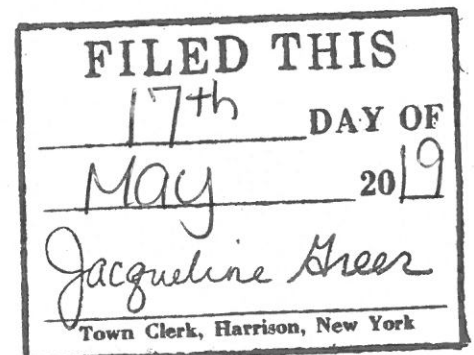 FILED THIS
17th DAY OF
May 2019
Jacqueline Greer
Town Clerk, Harrison, New York